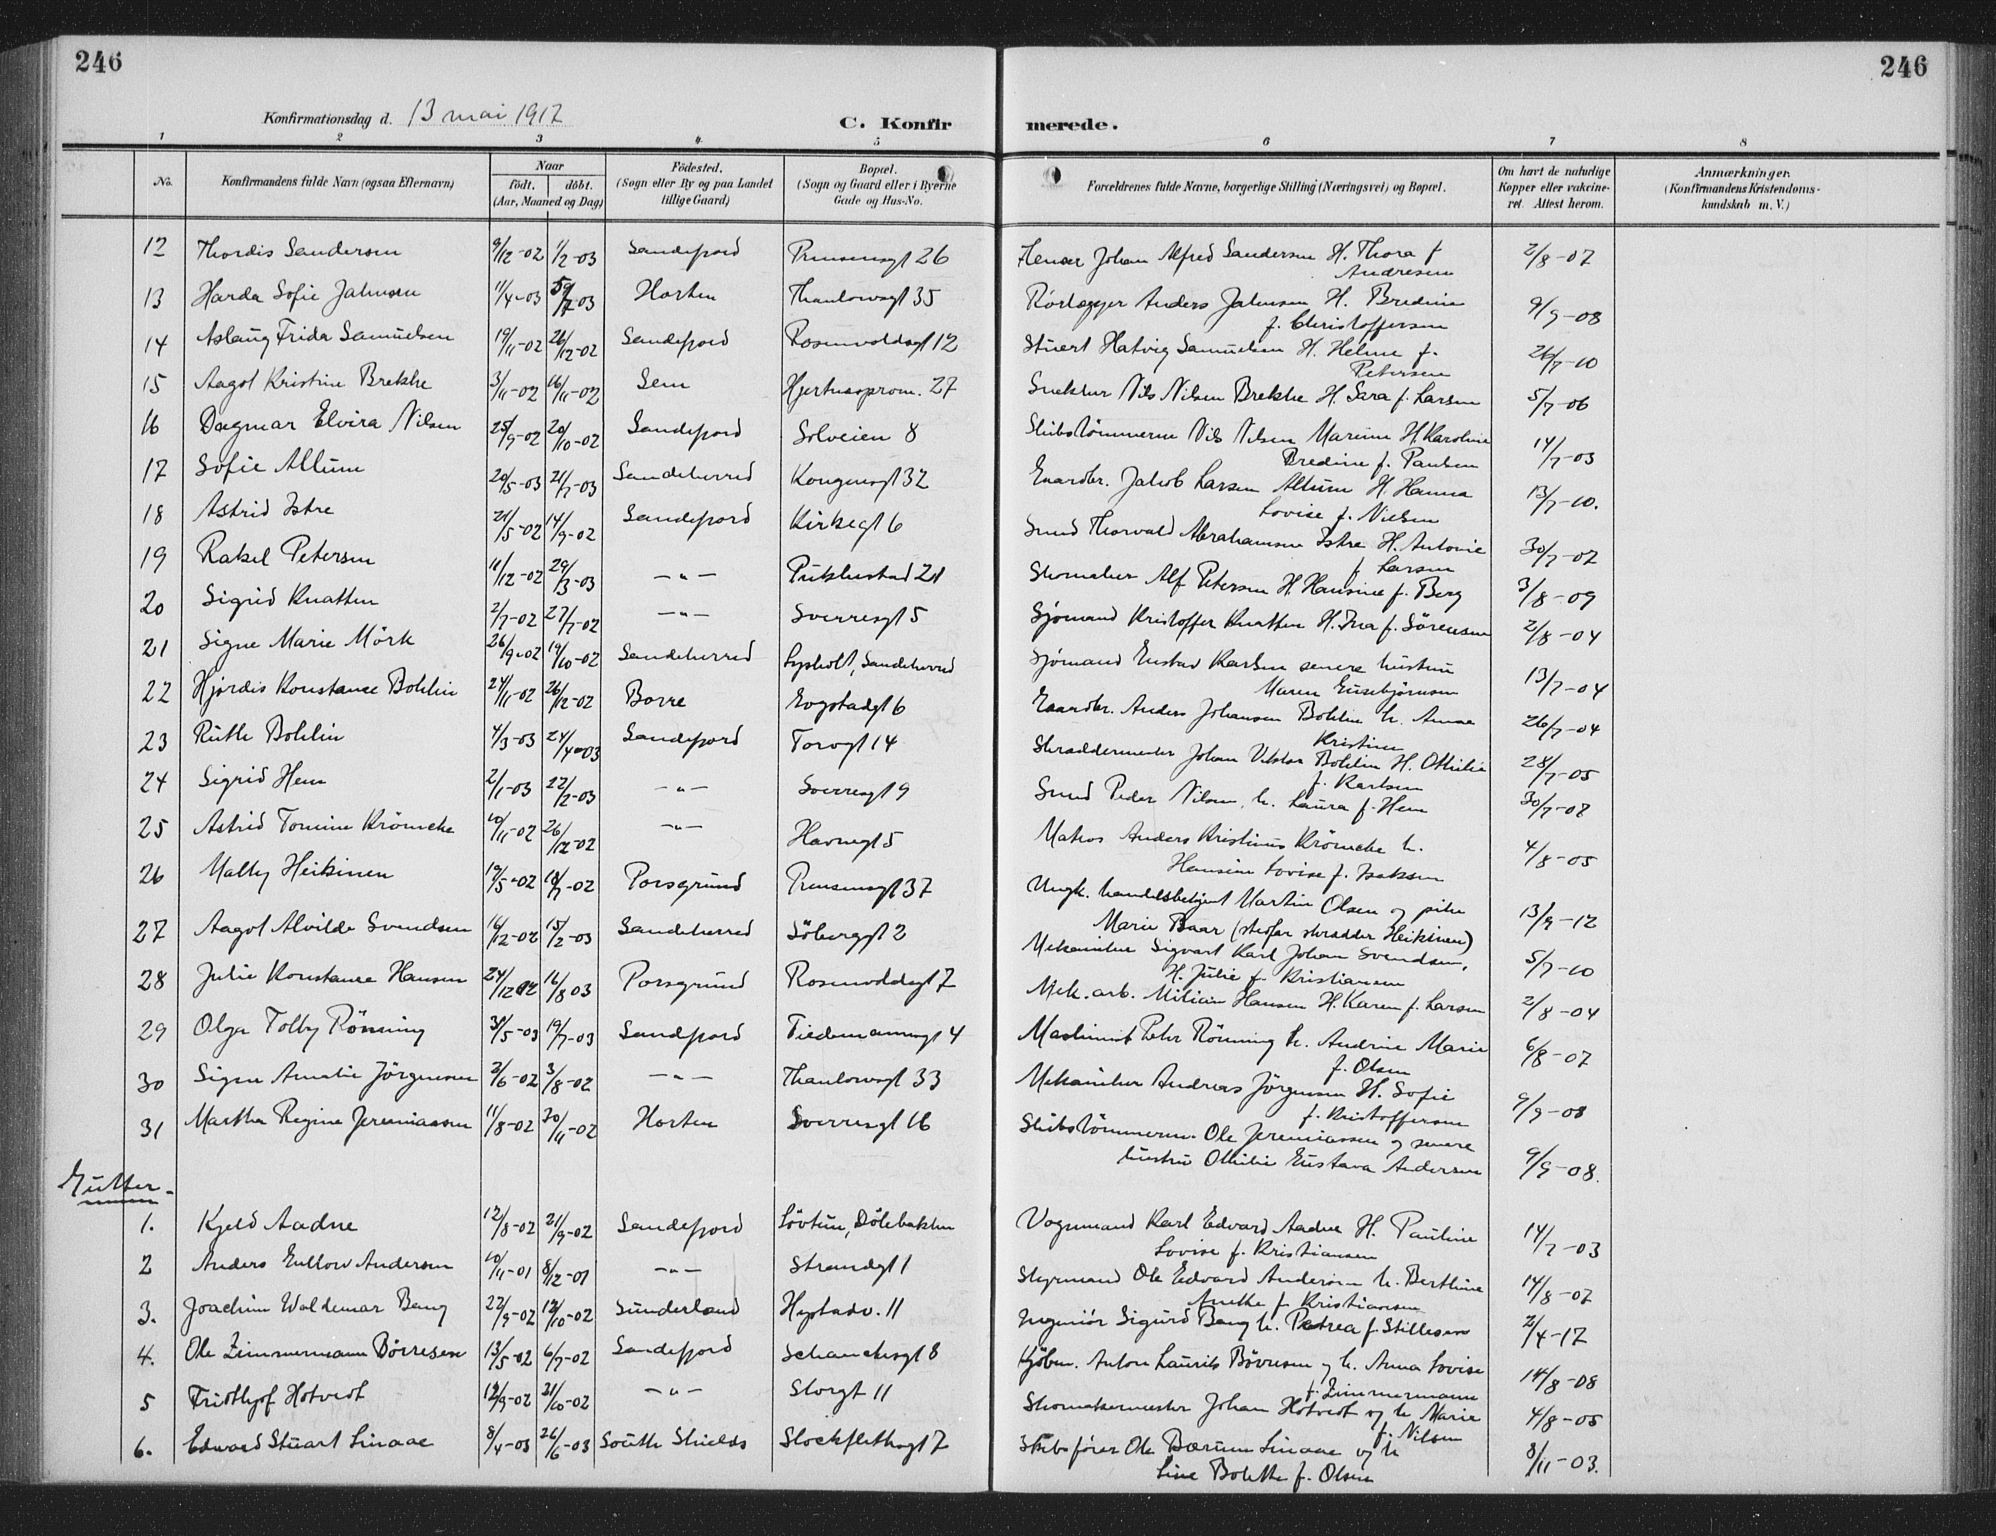 246
246
Konfirmationsdag d. 13 mai 1917
C. Konfir
merede.
1 2 3 4 5 6 7 8
No.
Konfirmandens fulde Navn (ogsaa Efternavn)
Naar
födt. döbt.
(Aar, Maaned og Dag)
Födested.
(Sogn eller By og paa Landet
tillige Gaard)
Bopæl.
(Sogn og Gaard eller i Byerne
Gade og Hus-No.
Forældrenes fulde Navne, borgerlige Stilling (Næringsvei) og Bopæl.
Om havt de naturlige
Kopper eller vakcine-
ret. Attest herom.
Anmærkninger.
(Konfirmandens Kristendoms-
kundskab m. V.)
12 Thordis Sandersen 9/12-02 1/2-03 Sandefjord Prinsensgt 26 Johan Alfred Sandersen H. Thora f. 2/8-07
Andresen
13 Harda Sofie Jahnsen 11/4-03 /7-03 Horten Thaulowsgt 35 Rörlægger Anders Jahnsen H. Bredine 9/9-08
f. Christoffersen
14 Aslaug Frida Samuelsen 19/11-02 26/12-02 Sandefjord Rosenvoldsgt 12 Stuert Hatvig Samuelsen H. Helene f. 26/7-10
Petersen
15 Aagot Kristine Brekke 3/11-02 16/11-02 Sem Hjertnesprom. 27 Snekker Nils Nilsen Brekke H. Sara f. Larsen 5/7-06
16 Dagmar Elvira Nilsen 25/9-02 20/10-02 Sandefjord Solveien 8 Skibstömmerm. Nils Nilsen H. Karoline 14/7-03
Bredine f. Paulsen
17 Sofie Allum 20/5-03 21/7-03 Sandeherred Kongensgt 32 Gaardbr. Jakob Larsen Allum H. Hanna 13/7-10.
Lovise f. Nielsen
18 Astrid Istre 21/5-02 14/9-02 Sandefjord Kirkegt 6 Smed Thorvald Abrahamsen Istre H. Antonie 30/7-07
f. Larsen
19 Rakel Petersen 11/12-02 29/3-03 -"- Pukkestad 21 Skomaker Alf Petersen H. Hansine f. Berg 3/8-09
20 Sigrid Knatten 2/7-02 27/7-02 -"- Sverresgt 5 Sjömand Kristoffer Knatten H. Ina f. Sörensen 2/8-04
21 Signe Marie Mörk 26/9-02 19/10-02 Sandeherred Lysholt, Sandeherred Sjömand Gustav Karlsen senere hustru 13/7-04
Maren
22 Hjördis Konstance Bohlin 24/11-02 26/12-02 Borre Gogstadgt 6 Gaardbr. Anders Johansen Bohlin h. Anna 26/7-04
Kristine
23 Ruth Bohlin 4/3-03 24/4-03 Sandefjord Torvgt 14 Skræddermester Johan Viktor Bohlin H. Othilie 28/7-05
f. Karlsen
24 Sigrid Hem 2/1-03 22/2-03 -"- Sverresgt 9 Smed Peder Nilsen, h. Laura f. Hem 30/7-07
25 Astrid Tomine Krömcke 10/11-02 26/12-02 -"- Havnegt 5 Matros Anders Kristinus Krömcke h. 4/8-05
Hansine Lovise f. Isaksen
26 Malby Heikinen 19/5-02 18/7-02 Porsgrund Prinsensgt 37 Ungk. handelsbetjent Martin Olsen og pike 13/9-12
Marie Baar (stefar skrædder Heikinen)
27 Aagot Alvilde Svendsen 16/12-02 15/2-03 Sandeherred Söbergt 2 Mekaniker Sigvart Karl Johan Svendsen, 5/7-10
H. Julie f. Kristiansen
28 Julie Konstance Hansen 24/12 02 16/8 03 Porsgrund Rosenvoldsgt 7 Mek. arb. Hansen H. Karen f. Larsen 2/8-04
29 Olga Tolby Rönning 31/5-03 19/7-03 Sandefjord Tiedemannsgt 4 Maskinist Peter Rönning h. Andrine Marie 6/8-07
f. Olsen
30 Signe Amalie Jörgensen 2/6-02 3/8-02 -"- Thaulowsgt 33 Mekaniker Andreas Jörgensen H. Sofie 9/9-08
f. Kristoffersen
31 Martha Regine Jeremiassen 11/8-02 30/11-02 Horten Sverresgt 16 Skibstömmerm. Ole Jeremiassen og senere 9/9-08.
hustru Othilie Gustava Andersen
Gutter-
1. Kjeld Aadne 12/8-02 21/9-02 Sandefjord Lövtun, Dölebakken Vognmand Karl Edvard Aadne H. Pauline 14/7-03
Lovise f. Kristiansen
2 Anders Andersen 10/11-01 8/12-01 -"- Strandgt 1 Styrmand Ole Edvard Andersen h. Berthine 14/8-07
Anethe f. Kristiansen
3. Joachim Waldemar Bang 22/9-02 12/10-02 Sunderland 11 Ingeniör Sigurd Bang h. Petrea f. Stillesen 2/4-17
4. Ole Zimmermann Börresen 13/5-02 6/7-02 Sandefjord Schanchesgt 8 Kjöbm. Anton Laurits Börresen og h. Anna Lovise 14/8-08
f. Zimmermann
5 Fridthjof Hotvedt 12/9-02 21/10-02 -"- Storgt 11 Skomakermester Johan Hotvedt og h. Marie 4/8-05
f. Nilsen
6. Edward Stuart Linaae 8/4-03 26/6-03 South Shields Stockflethsgt 7 Skibsförer Ole Bærum Linaae og h 8/11-03.
Line Bolette f. Olsen